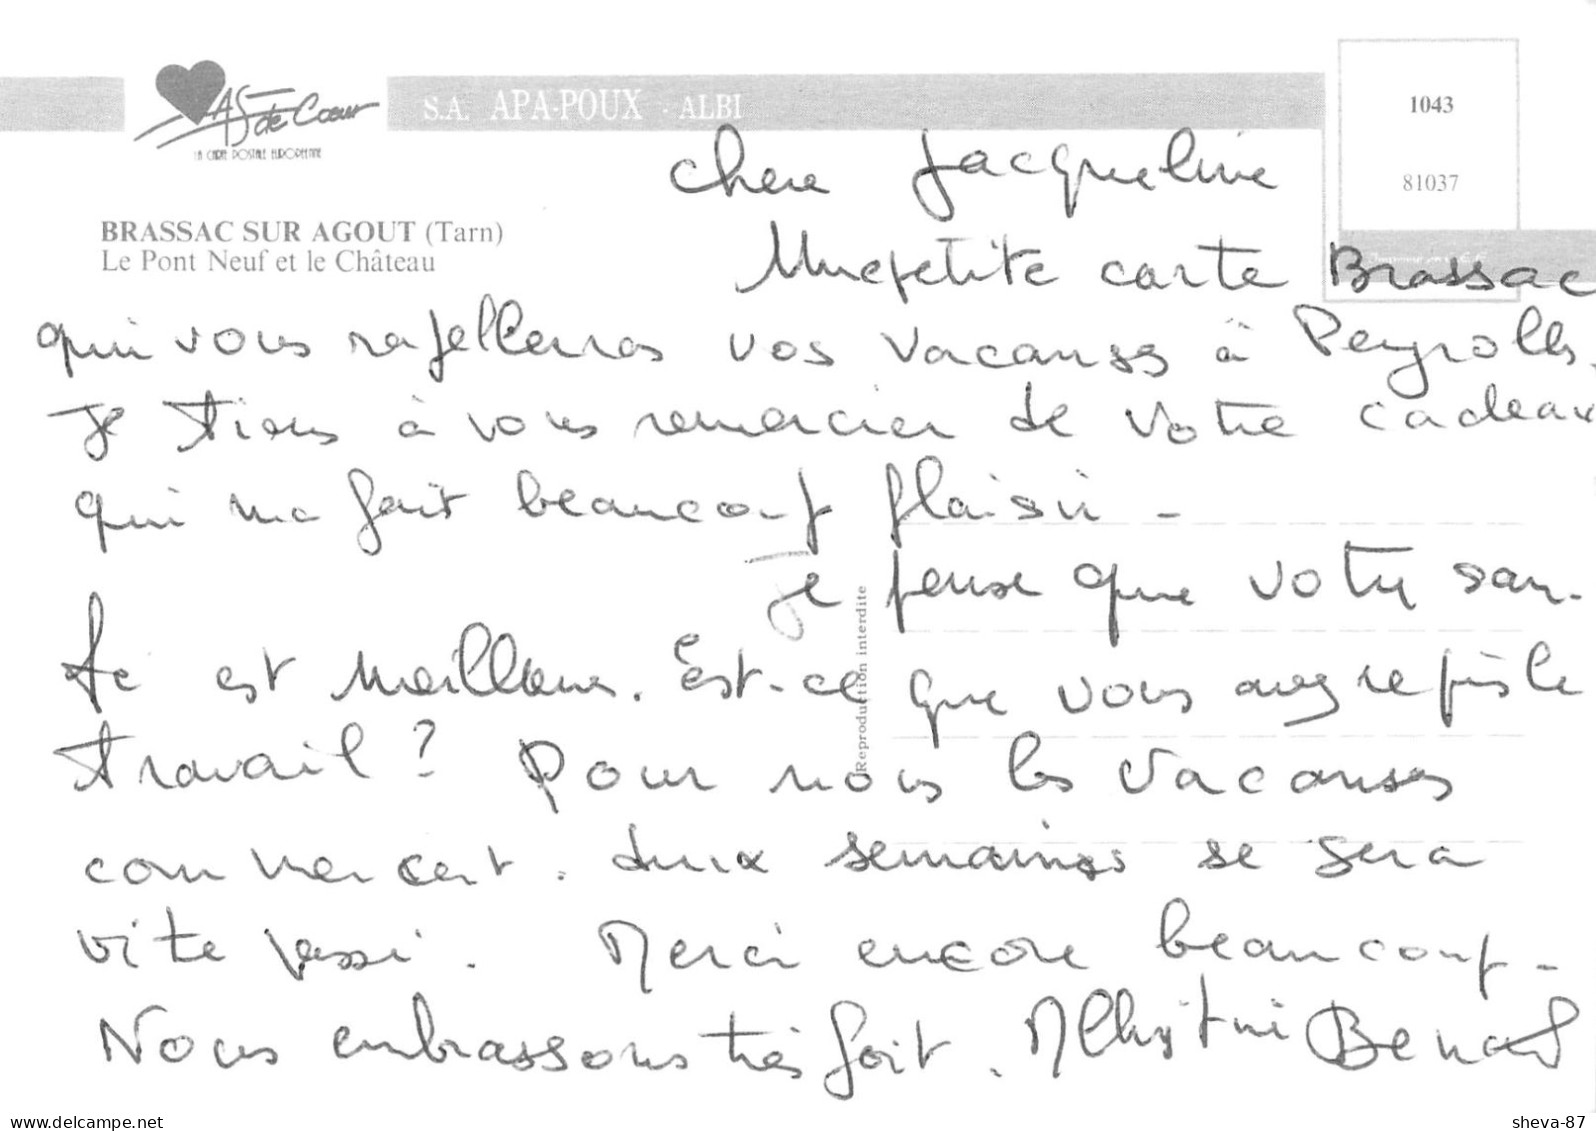 AS de Coeur
LA CARTE POSTALE EUROPEENNE
S.A. APA-POUX - ALBI
1043
81037
BRASSAC SUR AGOUT (Tarn)
Le Pont Neuf et le Château
Chere Jacqueline
Une petite carte Brassac
qui vous rapelleras vos vacanses à Peyrolles.
Je tiens à vous remercier de votre cadeau
qui ma fait beaucoup plaisir -
Je pense que votre san-
te est meilleure. Est-ce que vous avez repris le
travail ? Pour nous les vacanses
commencent. deux semaines se sera
vite passé. Merci encore beaucoup -
Nous embrassons très fort. Christine Benard
Reproduction interdite
www.delcampe.net
sheva-87